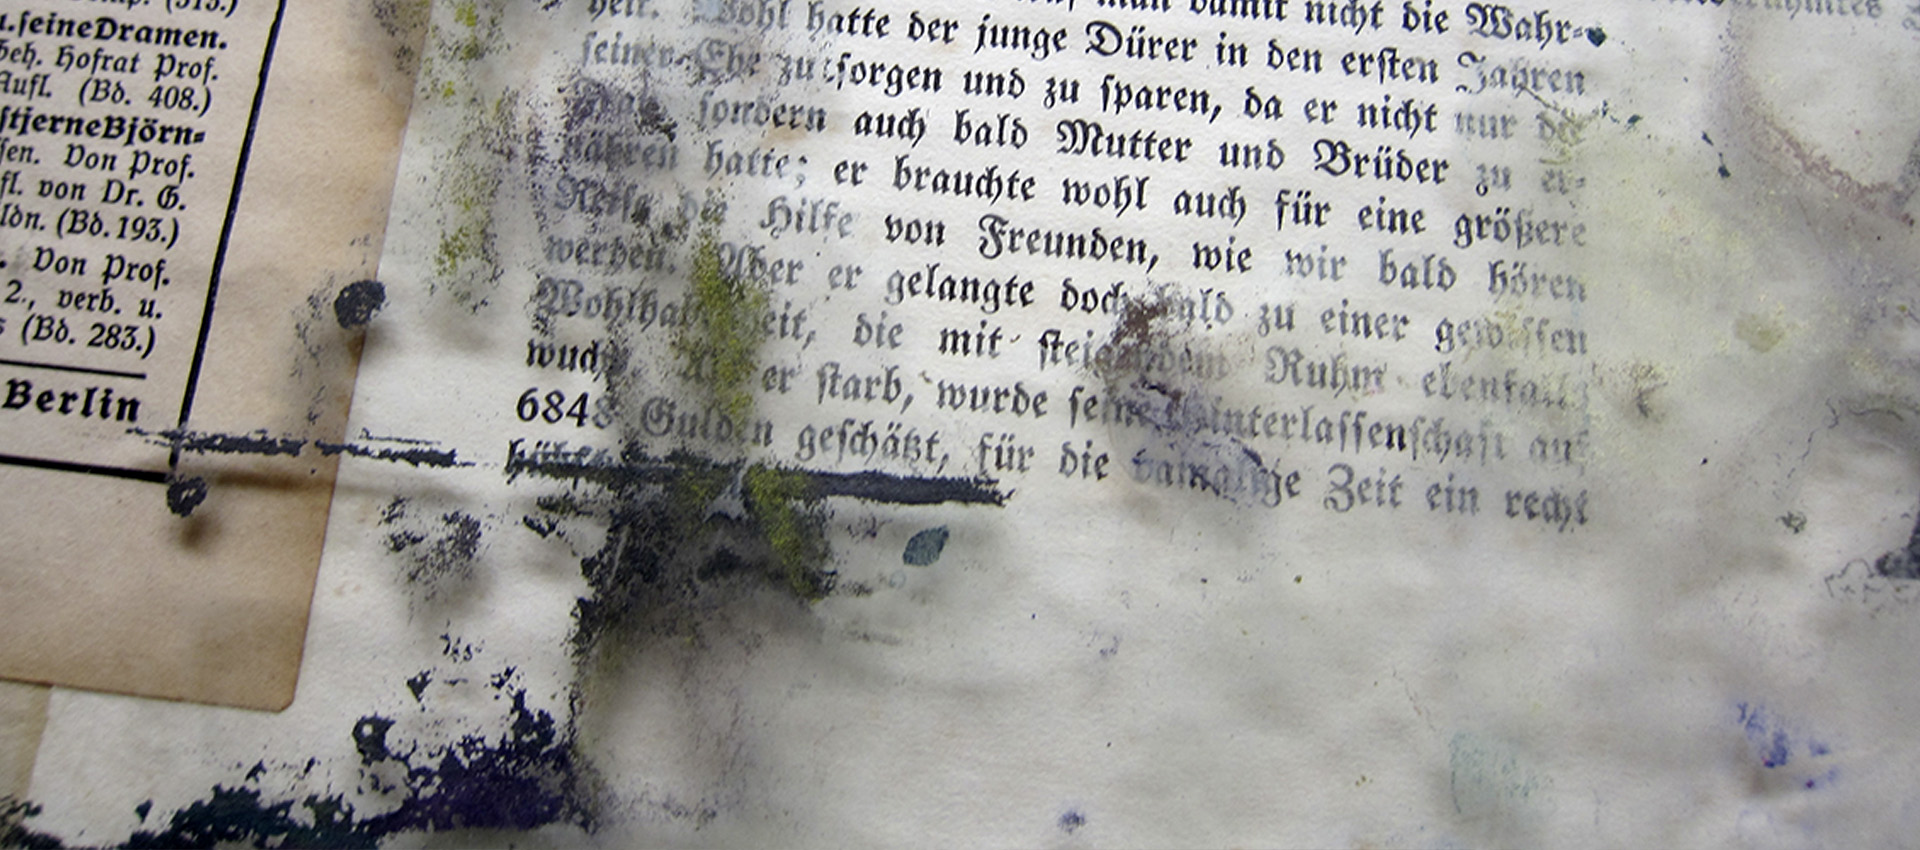 (313.)
u. seine Dramen.
Geh. Hofrat Prof.
Aufl. (Bd. 408.)
Björn=
Von Prof.
fl. von Dr. G.
(Bd. 193.)
Von Prof.
2., verb. u.
(Bd. 283.)
Berlin
man damit nicht die Wahr=
heit. Wohl hatte der junge Dürer in den ersten Jahren
seiner Ehe zu sorgen und zu sparen, da er nicht nur die
Frau, sondern auch bald Mutter und Brüder zu er=
nähren hatte; er brauchte wohl auch für eine größere
Reise die Hilfe von Freunden, wie wir bald hören
werden. Aber er gelangte doch bald zu einer gewissen
Wohlhabenheit, die mit steigendem Ruhm ebenfalls
wuchs. Als er starb, wurde seine Hinterlassenschaft auf
6848 Gulden geschätzt, für die damalige Zeit ein recht